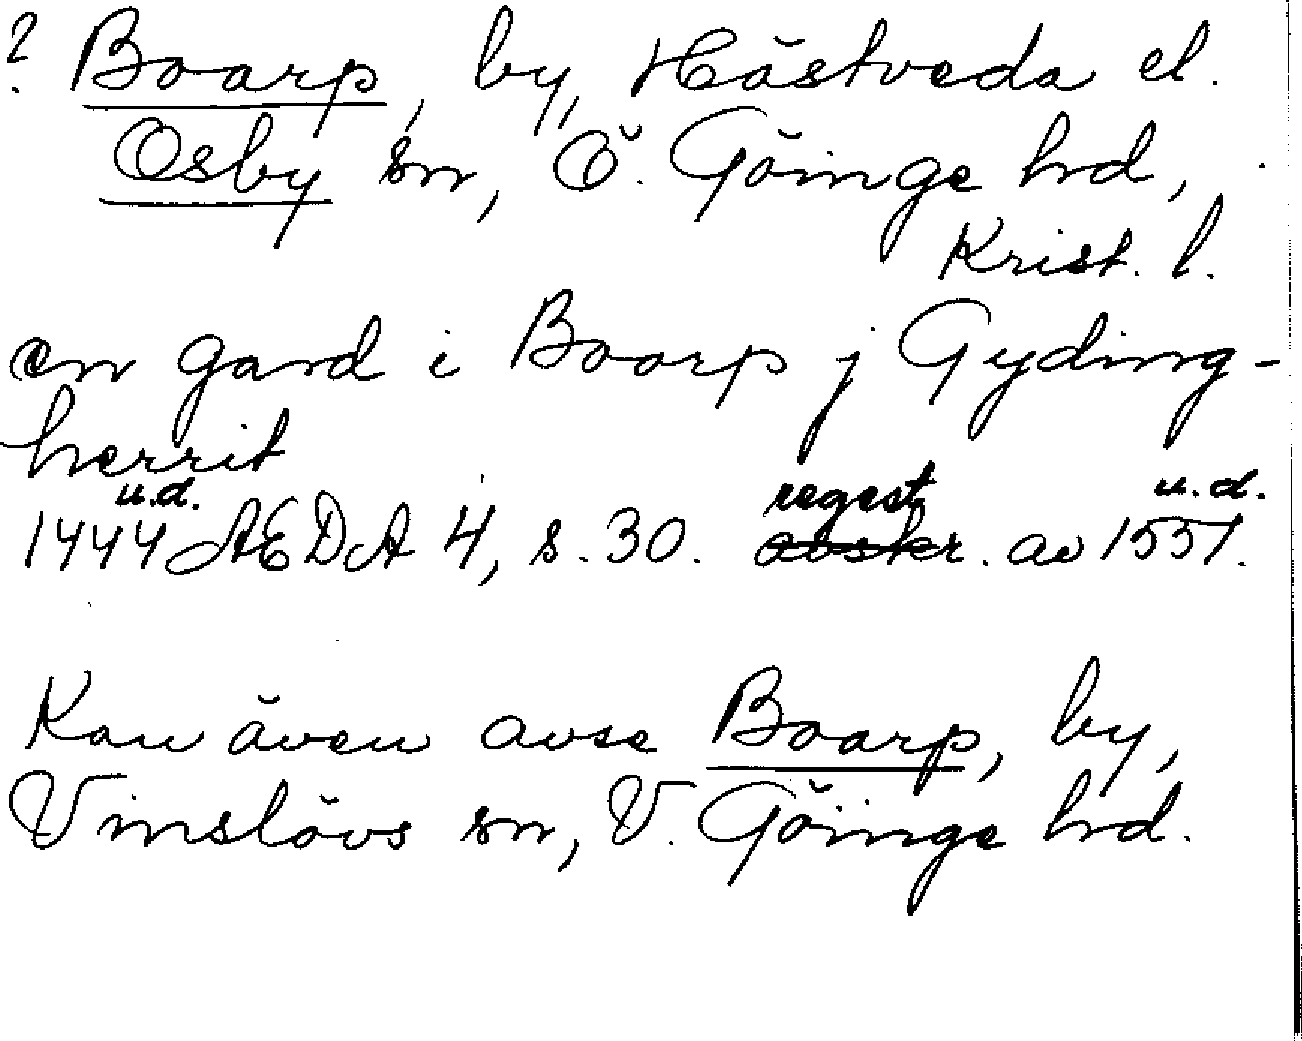 ? Boarp, by, Hästveda el.
Osby sn, Ö. Göinge hd,
Krist. l.
en gard i Boorp j Gyding-
herrit
u.d. regest u.d.
1444 ÆDA 4, s. 30. avskr. av 1551.
Kan även avse Boarp, by,
Vinslövs sn, V. Göinge hd.